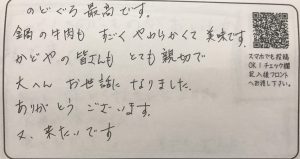 のどぐろ最高です。
鍋の牛肉もすごくやわらかくて美味です。
かどやの皆さんもとても親切で
大へんお世話になりました。
ありがとうございます。
又、来たいです
スマホでも投稿
OK!チェック欄
記入後フロント
へお渡し下さい。